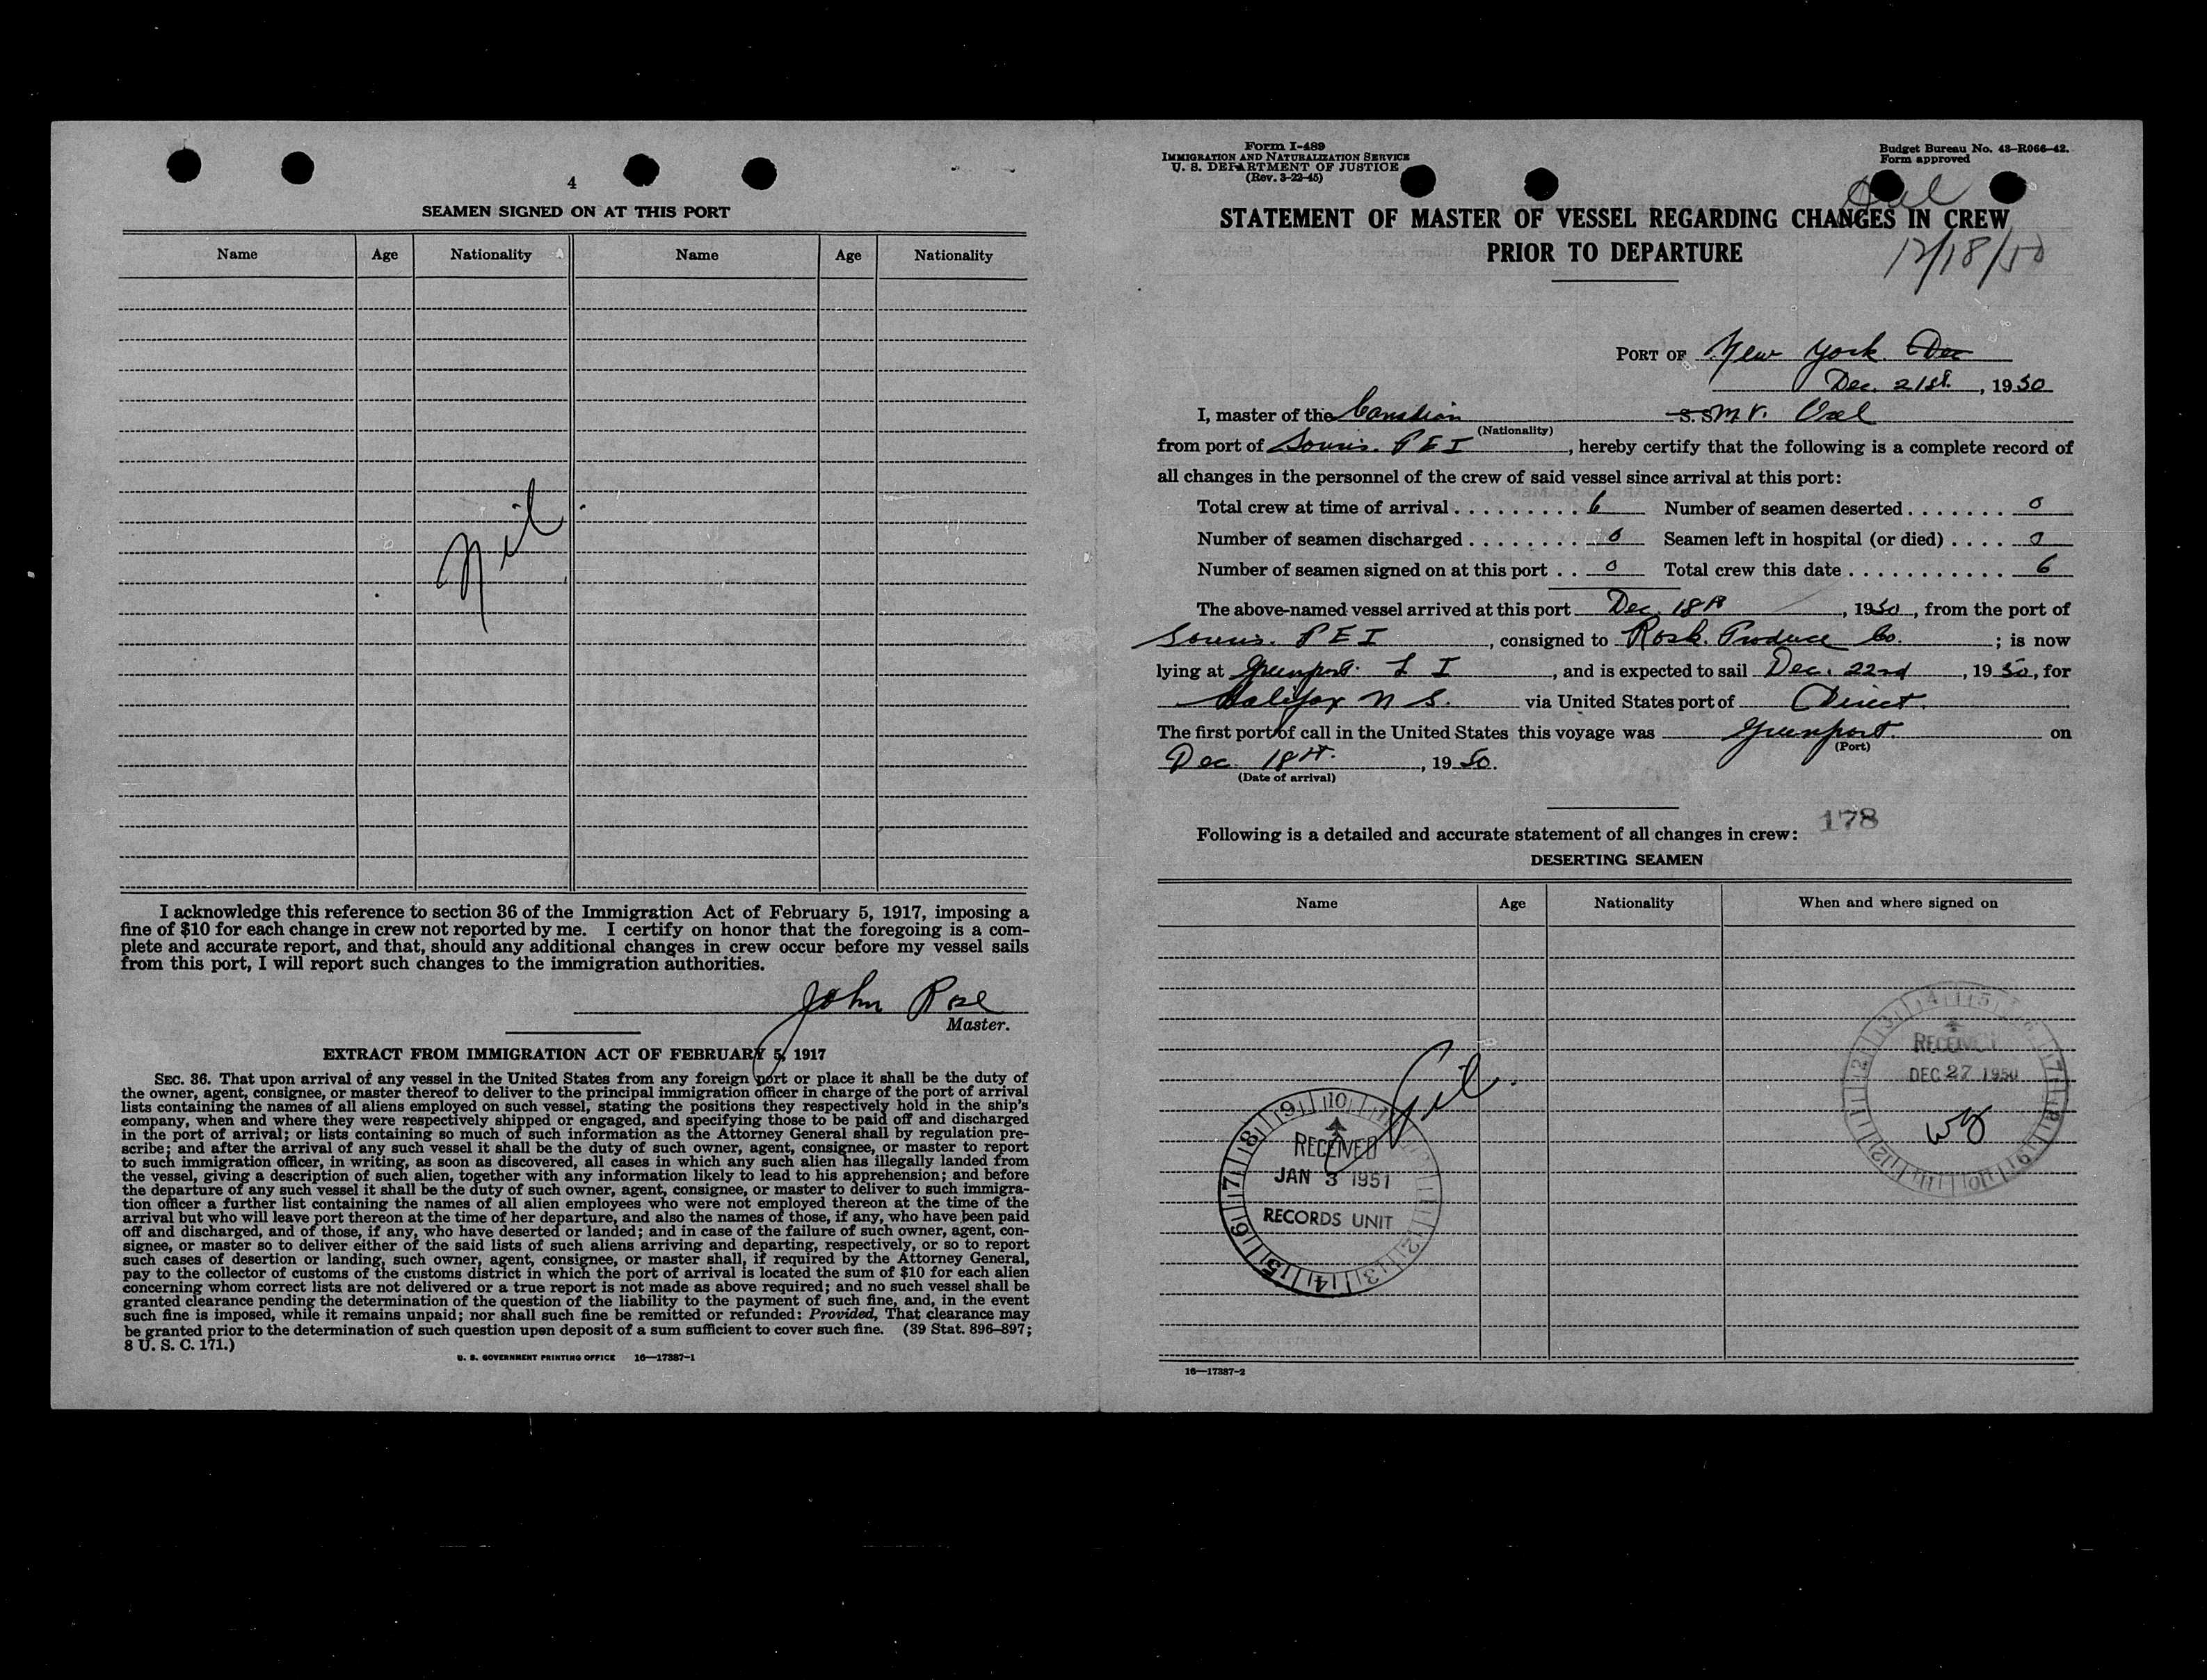 4
SEAMEN SIGNED ON AT THIS PORT
Name Age Nationality Name Age Nationality
Nil
I acknowledge this reference to section 36 of the Immigration Act of February 5, 1917, imposing a
fine of $10 for each change in crew not reported by me. I certify on honor that the foregoing is a com-
plete and accurate report, and that, should any additional changes in crew occur before my vessel sails
from this port, I will report such changes to the immigration authorities.
John Rose
Master.
EXTRACT FROM IMMIGRATION ACT OF FEBRUARY 5, 1917
SEC. 36. That upon arrival of any vessel in the United States from any foreign port or place it shall be the duty of
the owner, agent, consignee, or master thereof to deliver to the principal immigration officer in charge of the port of arrival
lists containing the names of all aliens employed on such vessel, stating the positions they respectively hold in the ship's
company, when and where they were respectively shipped or engaged, and specifying those to be paid off and discharged
in the port of arrival; or lists containing so much of such information as the Attorney General shall by regulation pre-
scribe; and after the arrival of any such vessel it shall be the duty of such owner, agent, consignee, or master to report
to such immigration officer, in writing, as soon as discovered, all cases in which any such alien has illegally landed from
the vessel, giving a description of such alien, together with any information likely to lead to his apprehension; and before
the departure of any such vessel it shall be the duty of such owner, agent, consignee, or master to deliver to such immigra-
tion officer a further list containing the names of all alien employees who were not employed thereon at the time of the
arrival but who will leave port thereon at the time of her departure, and also the names of those, if any, who have been paid
off and discharged, and of those, if any, who have deserted or landed; and in case of the failure of such owner, agent, con-
signee, or master so to deliver either of the said lists of such aliens arriving and departing, respectively, or so to report
such cases of desertion or landing, such owner, agent, consignee, or master shall, if required by the Attorney General,
pay to the collector of customs of the customs district in which the port of arrival is located the sum of $10 for each alien
concerning whom correct lists are not delivered or a true report is not made as above required; and no such vessel shall be
granted clearance pending the determination of the question of the liability to the payment of such fine, and, in the event
such fine is imposed, while it remains unpaid; nor shall such fine be remitted or refunded: Provided, That clearance may
be granted prior to the determination of such question upon deposit of a sum sufficient to cover such fine. (39 Stat. 896–897;
8 U. S. C. 171.)
U. S. GOVERNMENT PRINTING OFFICE 16—17387-1
Form I-489
IMMIGRATION AND NATURALIZATION SERVICE
U. S. DEPARTMENT OF JUSTICE
(Rev. 3-22-45)
Budget Bureau No. 43–R066–42.
Form approved
STATEMENT OF MASTER OF VESSEL REGARDING CHANGES IN CREW
PRIOR TO DEPARTURE
12/18/50
PORT OF New York Dec
Dec. 21st, 1950
I, master of the Canadian S. S. M V.
(Nationality)
from port of Souris. P E I, hereby certify that the following is a complete record of
all changes in the personnel of the crew of said vessel since arrival at this port:
Total crew at time of arrival . . . . . . . . . 6 Number of seamen deserted . . . . . . . 0
Number of seamen discharged . . . . . . . . 0 Seamen left in hospital (or died) . . . . 0
Number of seamen signed on at this port . . 0 Total crew this date . . . . . . . . . . . 6
The above-named vessel arrived at this port Dec. 18th, 1950, from the port of
Souris. P E I, consigned to Produce Co.; is now
lying at Greenport. L I, and is expected to sail Dec. 22nd, 1950, for
Halifax N S. via United States port of Direct.
The first port of call in the United States this voyage was Greenport. on
(Port)
Dec 18th. , 1950.
(Date of arrival)
178
Following is a detailed and accurate statement of all changes in crew:
DESERTING SEAMEN
Name Age Nationality When and where signed on
Nil.
RECEIVED
DEC 27 1950
RECEIVED
JAN 3 1951
RECORDS UNIT
16—17387-2